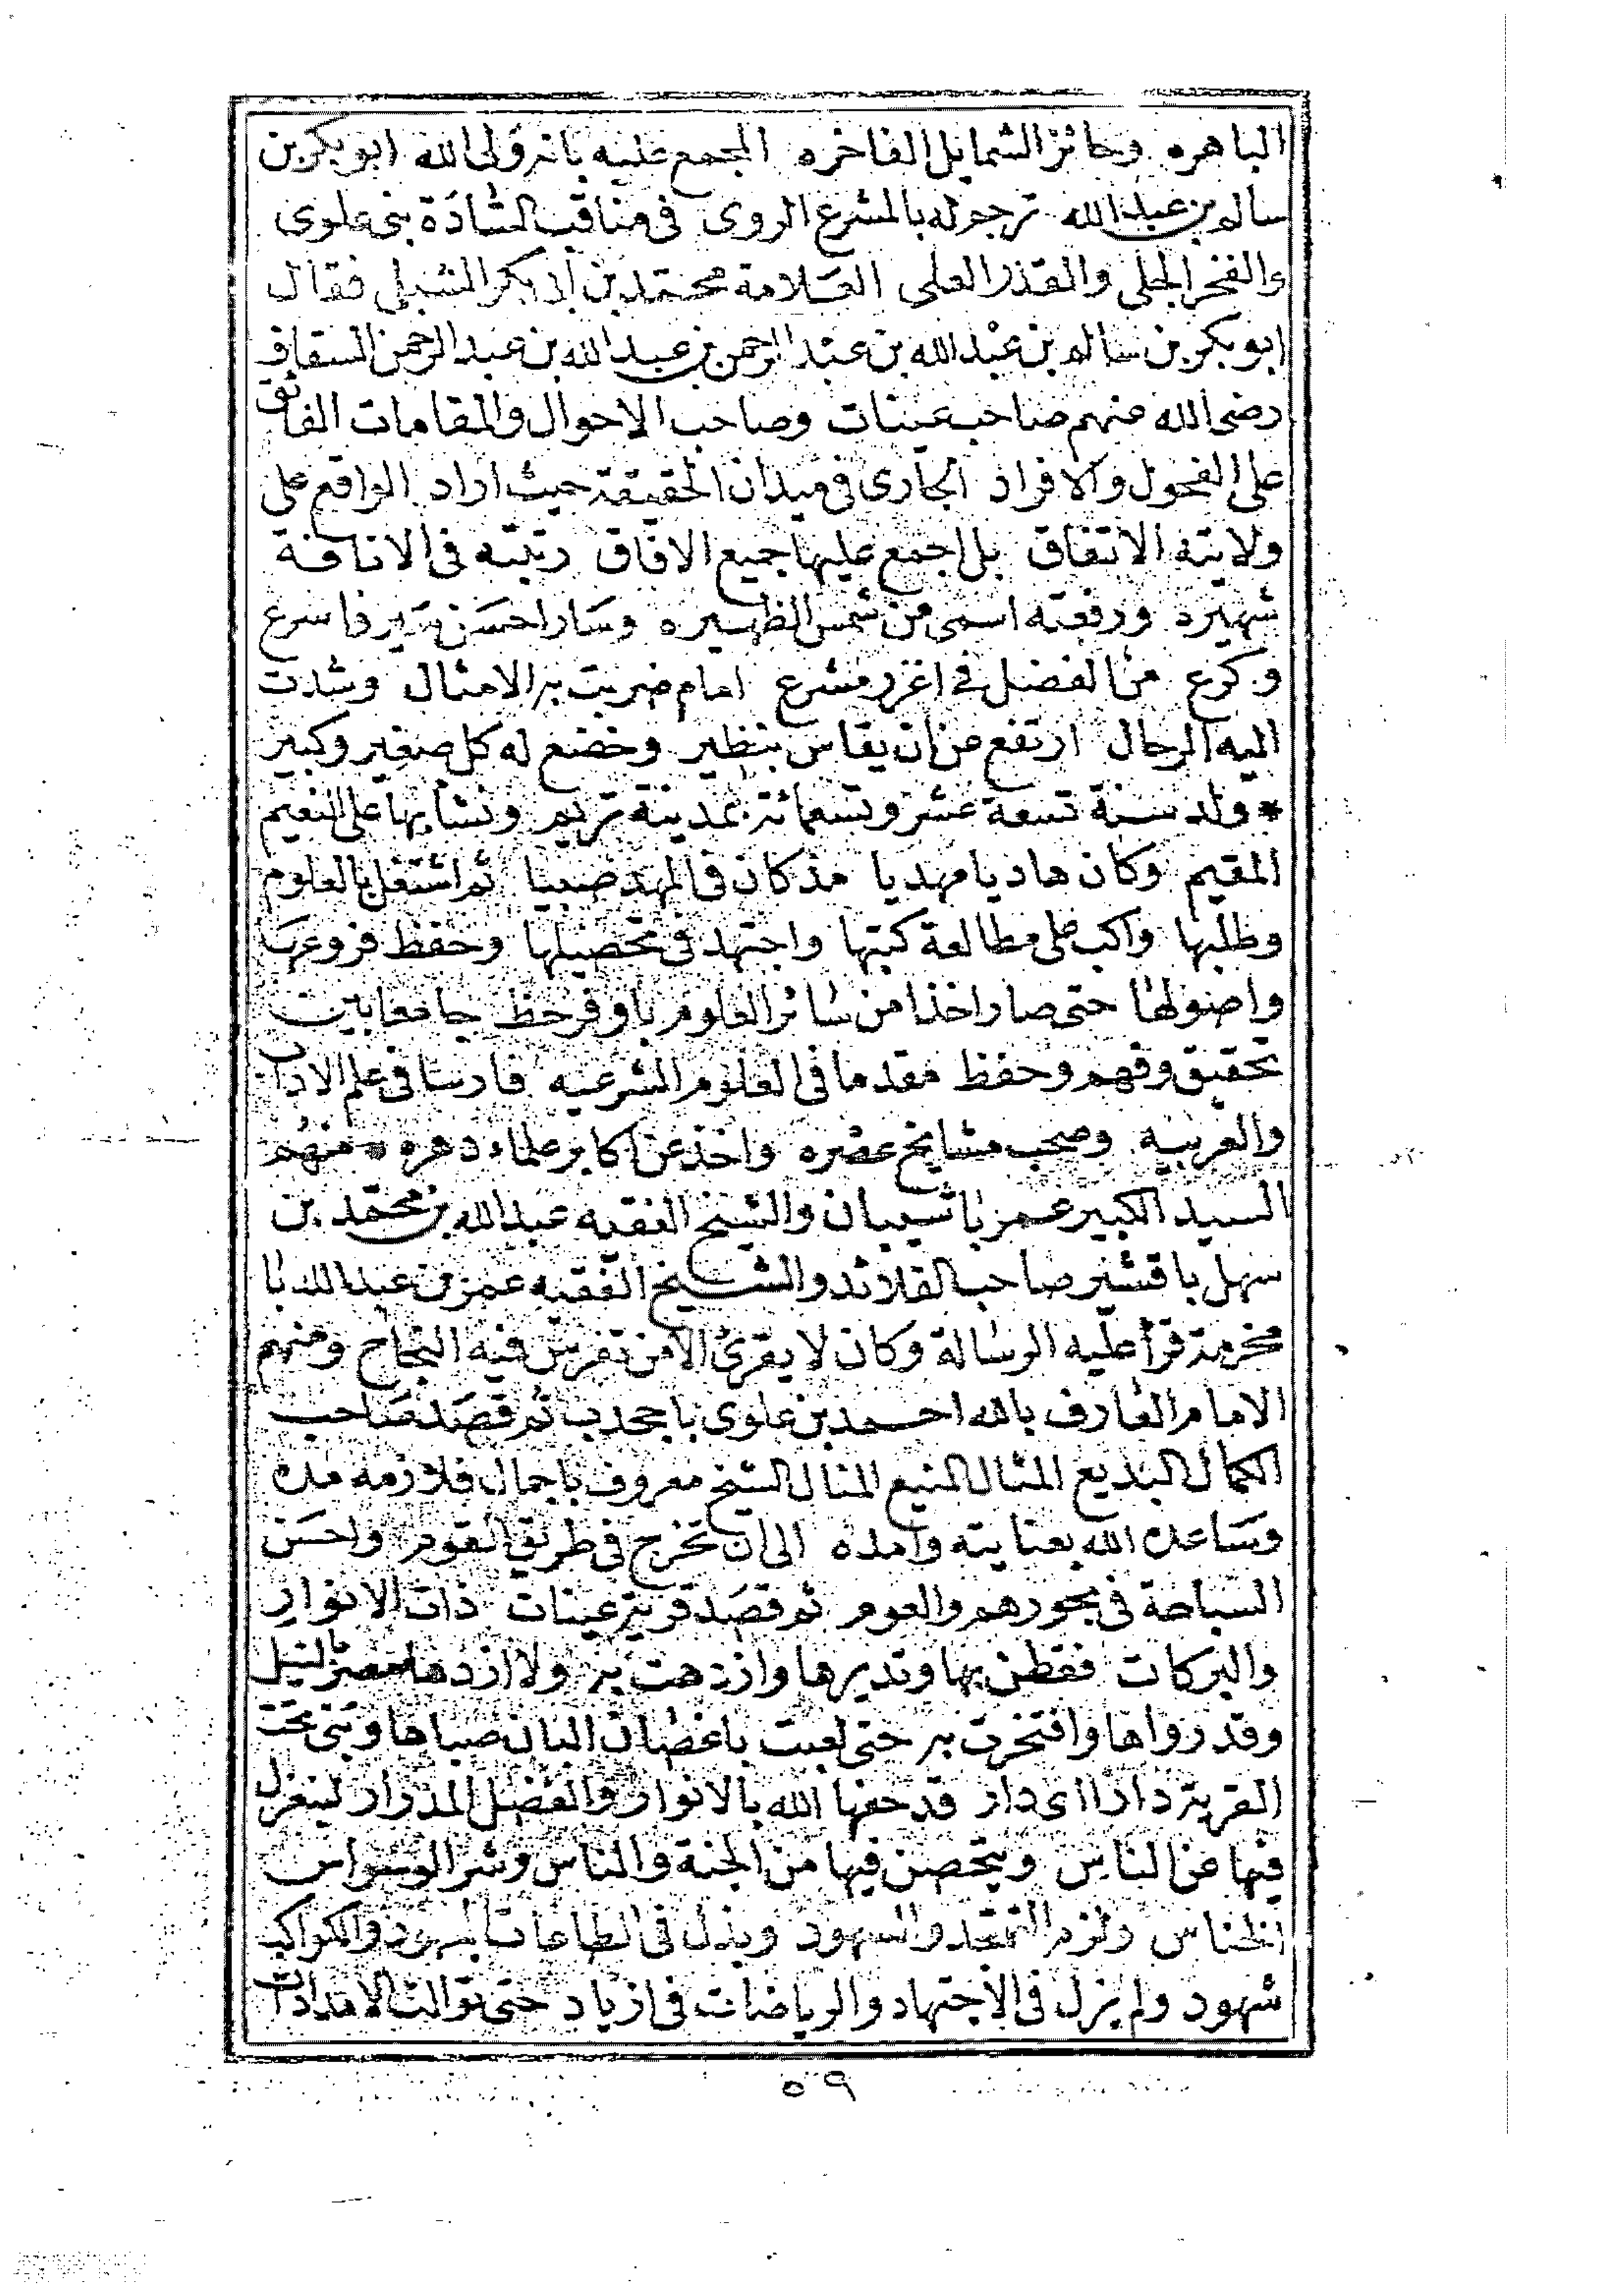 الباهره وحائز الشمايل الفاخره المجمع عليه بانه ولى الله ابو بكر بن
سالم بن عبد الله ترجم له بالمشرع الروى فى مناقب السّادَة بنى علوى
والفخر الجلى والقدر العلى العَلامة محمّد بن ابى بكر الشبلى فقال
ابو بكر بن سالم بن عبْد الله بن عبْد الرحمن بن عبد الله بن عبد الرحمن السقاف
رضى الله عنهم صاحب عينات وصاحب الاحوال والمقامات الفائق
على الفحول والافراد الجارى فى ميدان الحقيقة حيث اراد الواقع على
ولايته الاتفاق بل اجمع عليها جميع الافاق رتبته فى الانافة
شهيره ورفعته اسمى من شمس الظهيره وسَار احسَن سَير فاسرع
وكرع من الفضل فى اغزر مشرع امام ضربت به الامثال وشدت
اليه الرحال ارتفع عن ان يقاس بنظير وخضع له كل صغير وكبير
* ولد سنة تسعة عشر وتسعمائة بمدينة تريم ونشأ بها على النعيم
المقيم وكان هاديا مهديا مذ كان فى المهد صبيا ثم اشتغل بالعلوم
وطلبها واكب على مطالعة كتبها واجتهد فى تحصيلها وحفظ فروعها
واصولها حتى صار اخذا من سائر العلوم باوفر حظ جامعا بين
تحقيق وفهم وحفظ مقدما فى العلوم الشرعيه فارسا فى علم الاداب
والعربيه وصحب مشايخ عصره واخذ عن اكابر علماء دهره * منهم
السيد الكبير عمر باشيبان والشيخ الفقيه عبد الله بن محمّد بن
سهل باقشير صاحب القلائد والشيخ الفقيه عمر بن عبد الله با
مخرمة قرأ عليه الرسالة وكان لا يقرئ الا من تفرس فيه النجاح ومنهم
الامام العارف بالله احمد بن علوى باجحدب ثم قصَد صَاحب
الكمال البديع المثال المنيع المنال الشيخ معروف باجمال فلازمه مده
وسَاعده الله بعنايته وامده الى ان تخرج فى طريق القوم واحسَن
السباحة فى بحورهم والعوم ثم قصَد قرية عينات ذات الانوار
والبركات فقطن بها وتديرها وازدهت به ولا ازدها مصر بالنيل
وقد رواها وافتخرت به حتى لعبت باغصان البان صباها وبنى تحت
القرية دارا اى دار قد حفها الله بالانوار والفضل المدرار لينعزل
فيها عن الناس ويتحصن فيها من الجنة والناس وشر الوسواس
الخناس ولزم التهجد والسهود وبذل فى الطاعات والكواكب
شهود ولم يزل فى الاجتهاد والرياضات فى ازياد حتى توالت الامدادات
٥٩